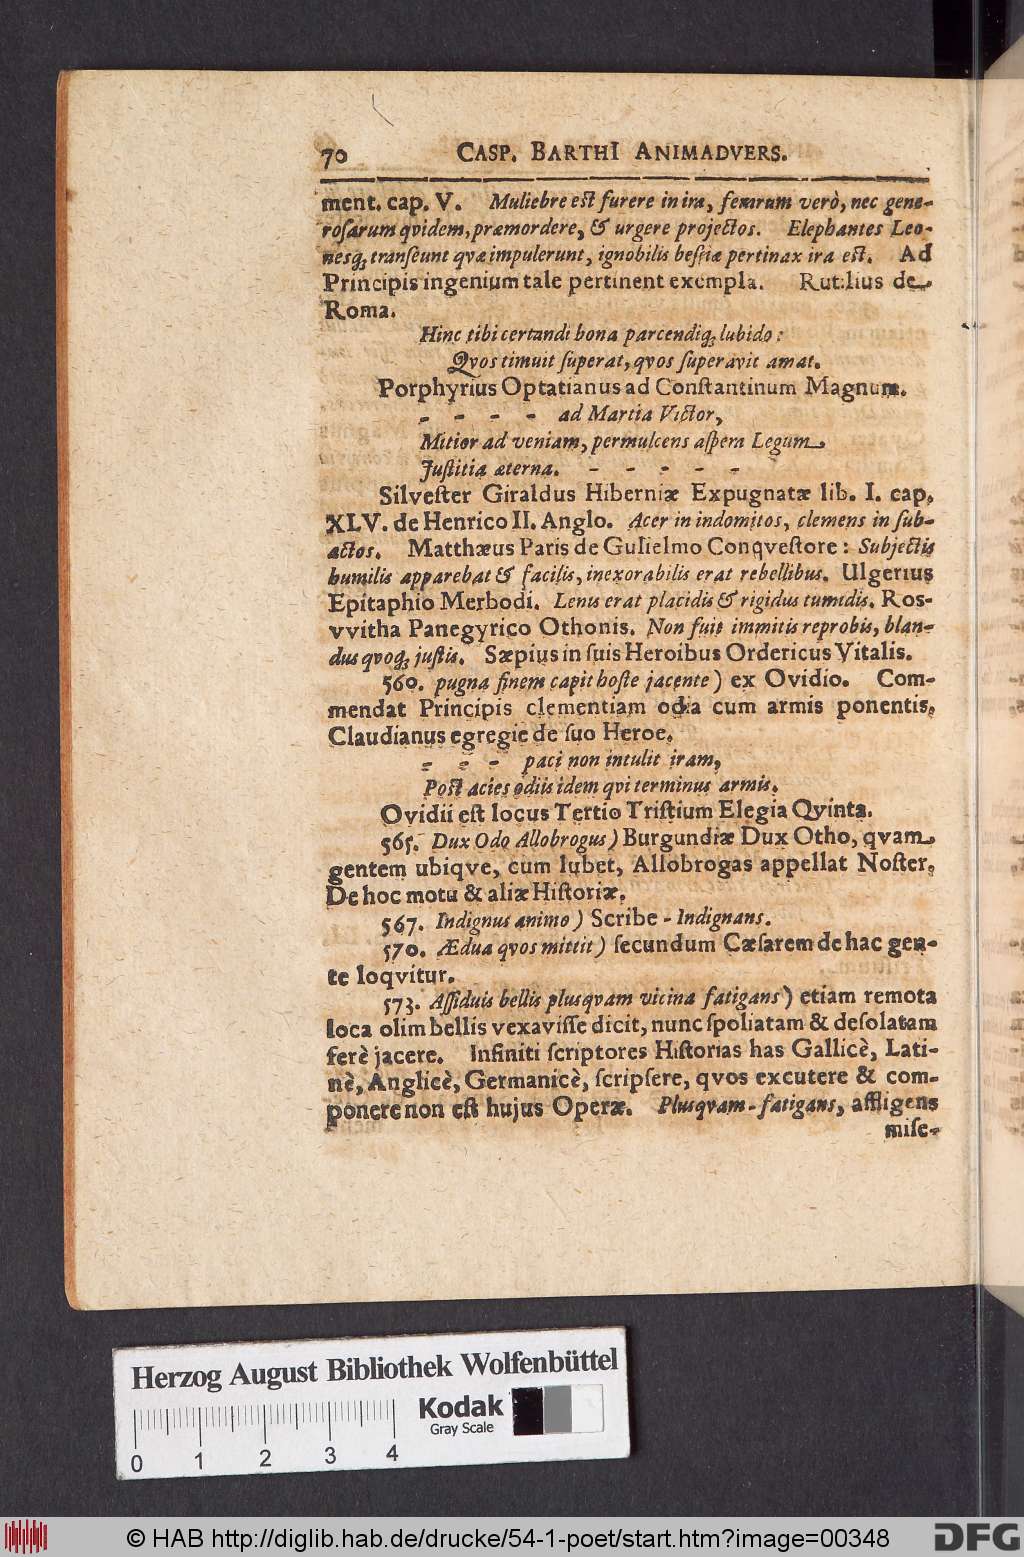 70 CASP. BARTHI ANIMADVERS.
ment. cap. V. Muliebre est furere in ira, ferarum verò, nec gene-
rosarum qvidem, præmordere, & urgere projectos. Elephantes Leo-
nesq; transeunt qvæ impulerunt, ignobilis bestiæ pertinax ira est. Ad
Principis ingenium tale pertinent exempla. Rutilius de
Roma.
Hinc tibi certandi bona parcendiq; lubido:
Qvos timuit superat, qvos superavit amat.
Porphyrius Optatianus ad Constantinum Magnum.
- - - - ad Martia Victor,
Mitior ad veniam, permulcens aspera Legum
Justitia æterna. - - - - -
Silvester Giraldus Hiberniæ Expugnatæ lib. I. cap.
XLV. de Henrico II. Anglo. Acer in indomitos, clemens in sub-
actos. Matthæus Paris de Gulielmo Conqvestore: Subjectis
humilis apparebat & facilis, inexorabilis erat rebellibus. Ulgerius
Epitaphio Merbodi. Lenis erat placidis & rigidus tumidis. Ros-
vvitha Panegyrico Othonis. Non fuit immitis reprobis, blan-
dus qvoq; justis. Sæpius in suis Heroibus Ordericus Vitalis.
560. pugna finem capit hoste jacente) ex Ovidio. Com-
mendat Principis clementiam odia cum armis ponentis,
Claudianus egregie de suo Heroe,
- - - paci non intulit iram,
Post acies odiis idem qvi terminus armis.
Ovidii est locus Tertio Tristium Elegia Qvinta.
565. Dux Odo Allobrogus) Burgundiæ Dux Otho, qvam
gentem ubiqve, cum lubet, Allobrogas appellat Noster.
De hoc motu & aliæ Historiæ.
567. Indignus animo) Scribe - Indignans.
570. Ædua qvos mittit) secundum Cæsarem de hac gen-
te loqvitur.
573. Assiduis bellis plusqvam vicina fatigans) etiam remota
loca olim bellis vexavisse dicit, nunc spoliatam & desolatam
ferè jacere. Infiniti scriptores Historias has Gallicè, Lati-
nè, Anglicè, Germanicè, scripsere, qvos excutere & com-
ponere non est hujus Operæ. Plusqvam-fatigans, affligens
mise-
Herzog August Bibliothek Wolfenbüttel
Kodak
Gray Scale
0 1 2 3 4
© HAB http://diglib.hab.de/drucke/54-1-poet/start.htm?image=00348
DFG